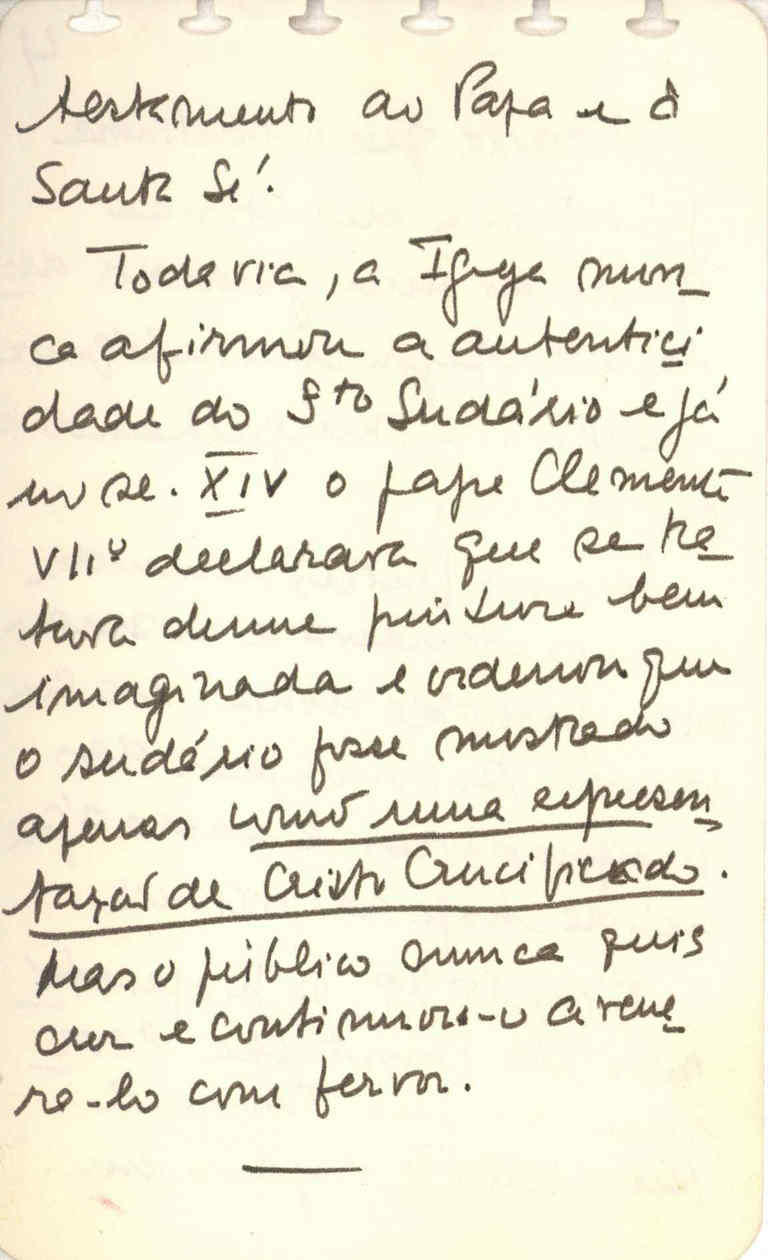 testamento ao Papa e à
Santa Sé.
Todavia, a Igreja nun_
ca afirmou a autentici
dade do Sto Sudário e já
no sc. XIV o papa Clemente
VIIº declarava que se tra_
tava duma pintura bem
imaginada e ordenou que
o sudário fosse mostrado
apenas como uma represen_
tação de Cristo Crucificado.
Mas o público nunca quis
crer e continuou-o a vene_
rá-lo com fervor.